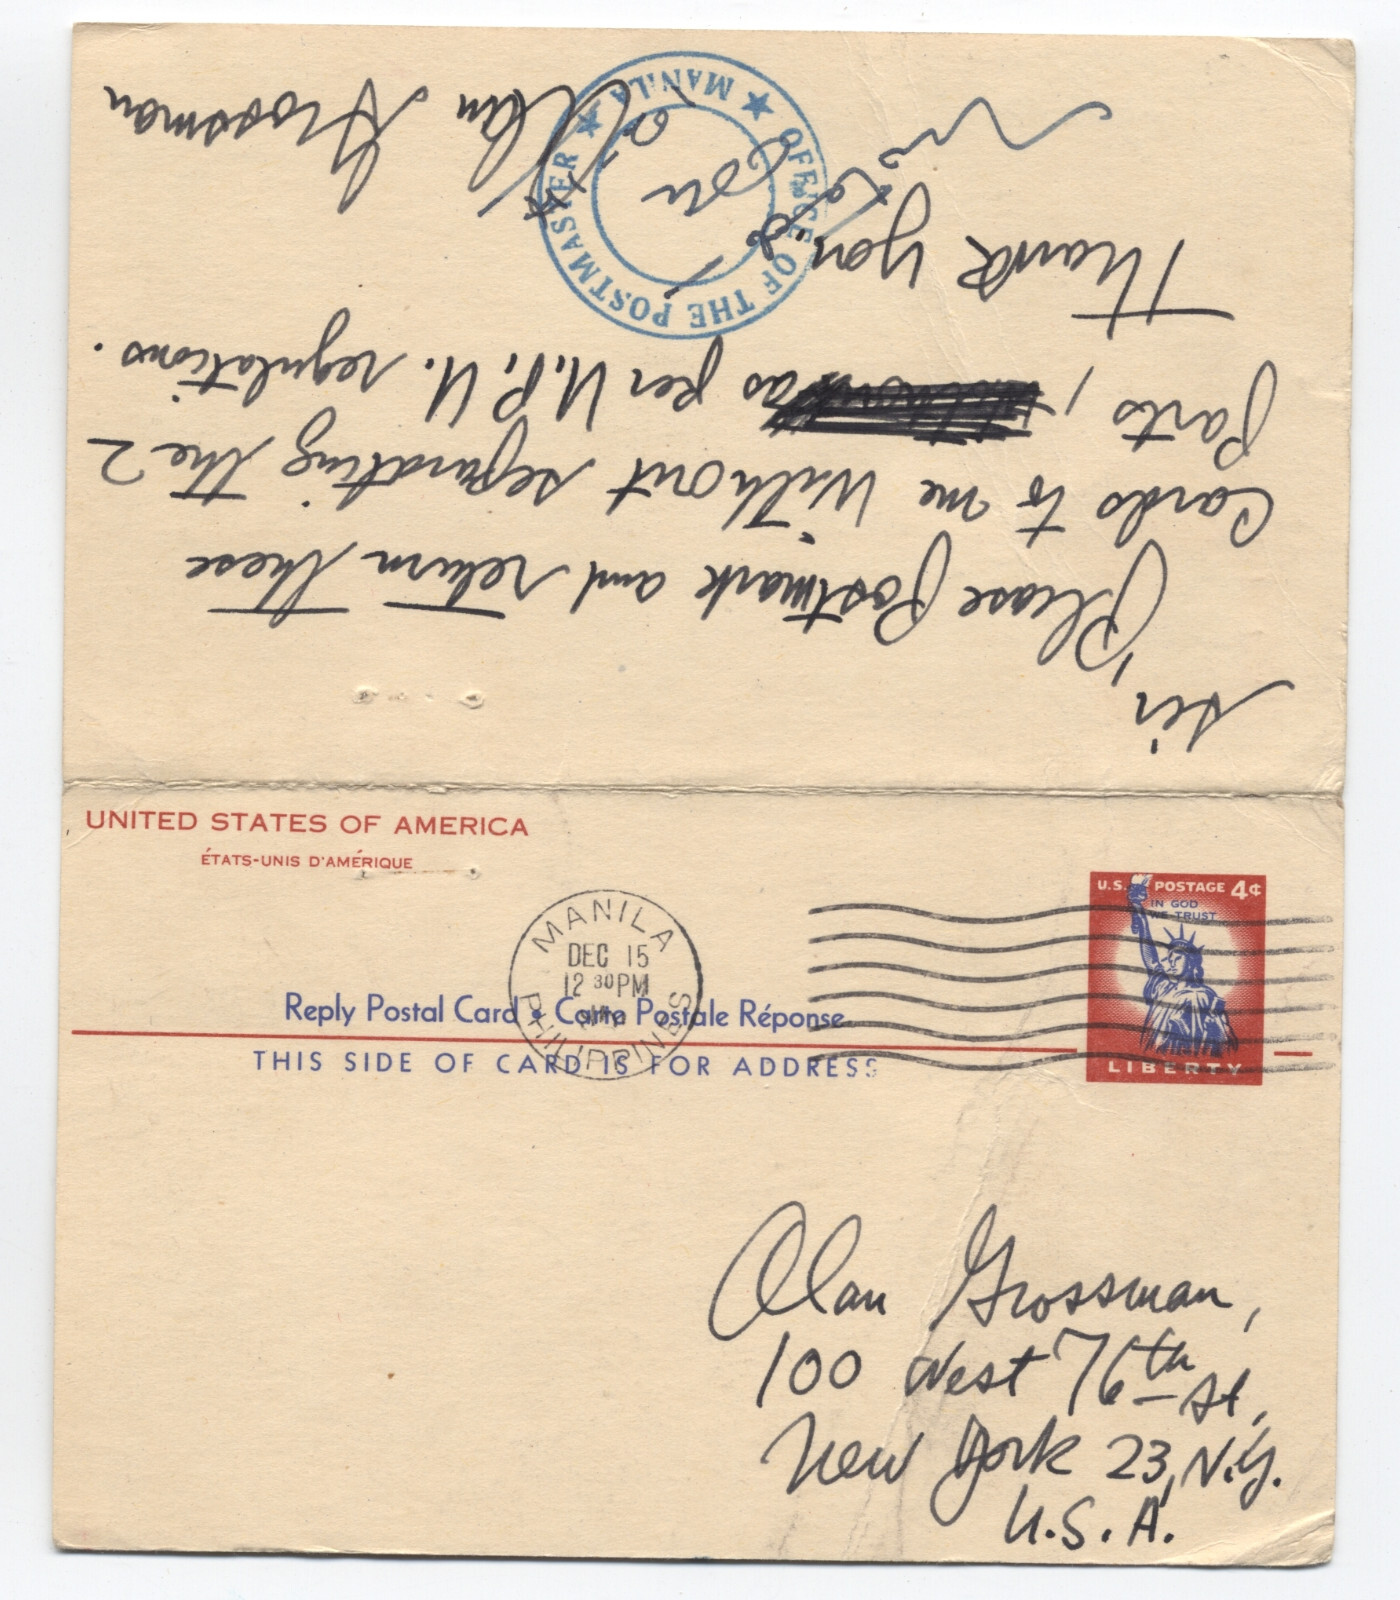 Sir,
Please postmark and return these
Cards to me without separating the 2
parts, as per U.P.U. regulations.
Thank you
Alan Grossman
OFFICE OF THE POSTMASTER
MANILA
UNITED STATES OF AMERICA
ÉTATS-UNIS D'AMÉRIQUE
U.S. POSTAGE 4¢
IN GOD
WE TRUST
LIBERTY
MANILA
DEC 15
12 30 PM
PHILIPPINES
Reply Postal Card • Carte Postale Réponse
THIS SIDE OF CARD IS FOR ADDRESS
Alan Grossman,
100 West 76th St,
New York 23, N.Y.
U.S.A.